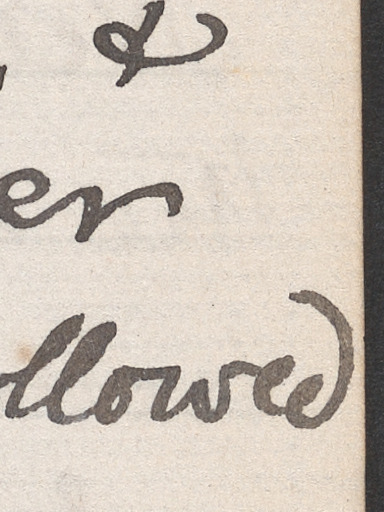 , &
er
ollowed